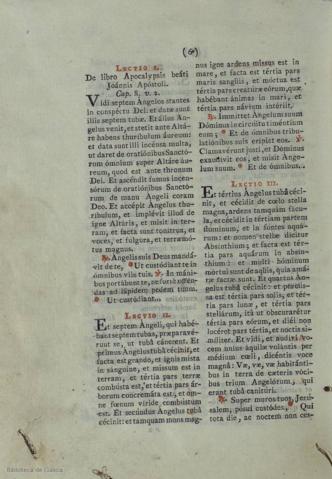 (6)
Lectio I.
De libro Apocalypsis beáti
Joánnis Apóstoli.
Cap. 8. v. 2.
Vidi septem Angelos stantes
in conspéctu Dei: et datæ sunt
illis septem tubæ. Et álius An-
gelus venit, et stetit ante Altá-
re habens thuríbulum áureum:
et data sunt illi incénsa multa,
ut daret de oratiónibus Sanctó-
rum ómnium super Altáre áu-
reum, quod est ante thronum
Dei. Et ascéndit fumus incen-
sórum de oratiónibus Sanctó-
rum de manu Angeli coram
Deo. Et accépit Angelus thu-
ríbulum, et implévit illud de
igne Altáris, et misit in ter-
ram, et facta sunt tonítrua, et
voces, et fúlgura, et terræmó-
tus magnus.
℟. Angelis suis Deus mandá-
vit de te, * Ut custódiant te in
ómnibus viis tuis. ℣. In máni-
bus portábunt te, ne forte offén-
das ad lápidem pedem tuum.
* Ut custódiant...
Lectio II.
Et septem Angeli, qui habé-
bant septem tubas, præparavé-
runt se, ut tubâ cánerent. Et
primus Angelus tubâ cécinit, et
facta est grando, et ignis mista
in sánguine, et missum est in
terram, et tértia pars terræ
combústa est, et tértia pars ár-
borum concremáta est, et om-
ne fœnum víride combústum
est. Et secúndus Angelus tubâ
cécinit: et tamquam mons mag-
nus igne ardens missus est in
mare, et facta est tértia pars
maris sanguis, et mórtua est
tértia pars creatúræ eórum, quæ
habébant ánimas in mari, et
tértia pars návium intériit.
℟. Immíttet Angelum suum
Dóminus in circúitu timéntium
eum; * Et de ómnibus tribu-
latiónibus suis erípiet eos. ℣.
Clamavérunt justi, et Dóminus
exaudívit eos, et misit Ange-
lum suum. * Et de ómnibus..
Lectio III.
Et tértius Angelus tubâ céci-
nit, et cécidit de cœlo stella
magna, ardens tamquam fácu-
la, et cécidit in tértiam partem
flúminum, et in fontes aquá-
rum: et nomen stellæ dícitur
Absínthium; et facta est tér-
tia pars aquárum in absín-
thium: et multi hóminum
mórtui sunt de aquis, quia amá-
ræ factæ sunt. Et quartus An-
gelus tubâ cécinit: et percús-
sa est tértia pars solis, et tér-
tia pars lunæ, et tértia pars
stellárum, ita ut obscurarétur
tértia pars eórum, et diéi non
lucéret pars tértia, et noctis si-
míliter. Et vidi, et audívi vo-
cem unius áquilæ volántis per
médium cœli, dicéntis voce
magnâ: Væ, væ, væ habitánti-
bus in terra de cæteris vóci-
bus trium Angelórum, qui
erant tubâ canitúri.
℟. Super muros tuos, Jerú-
salem, pósui custódes, * Qui
tota die, ac noctem non ces-
Biblioteca de Galicia